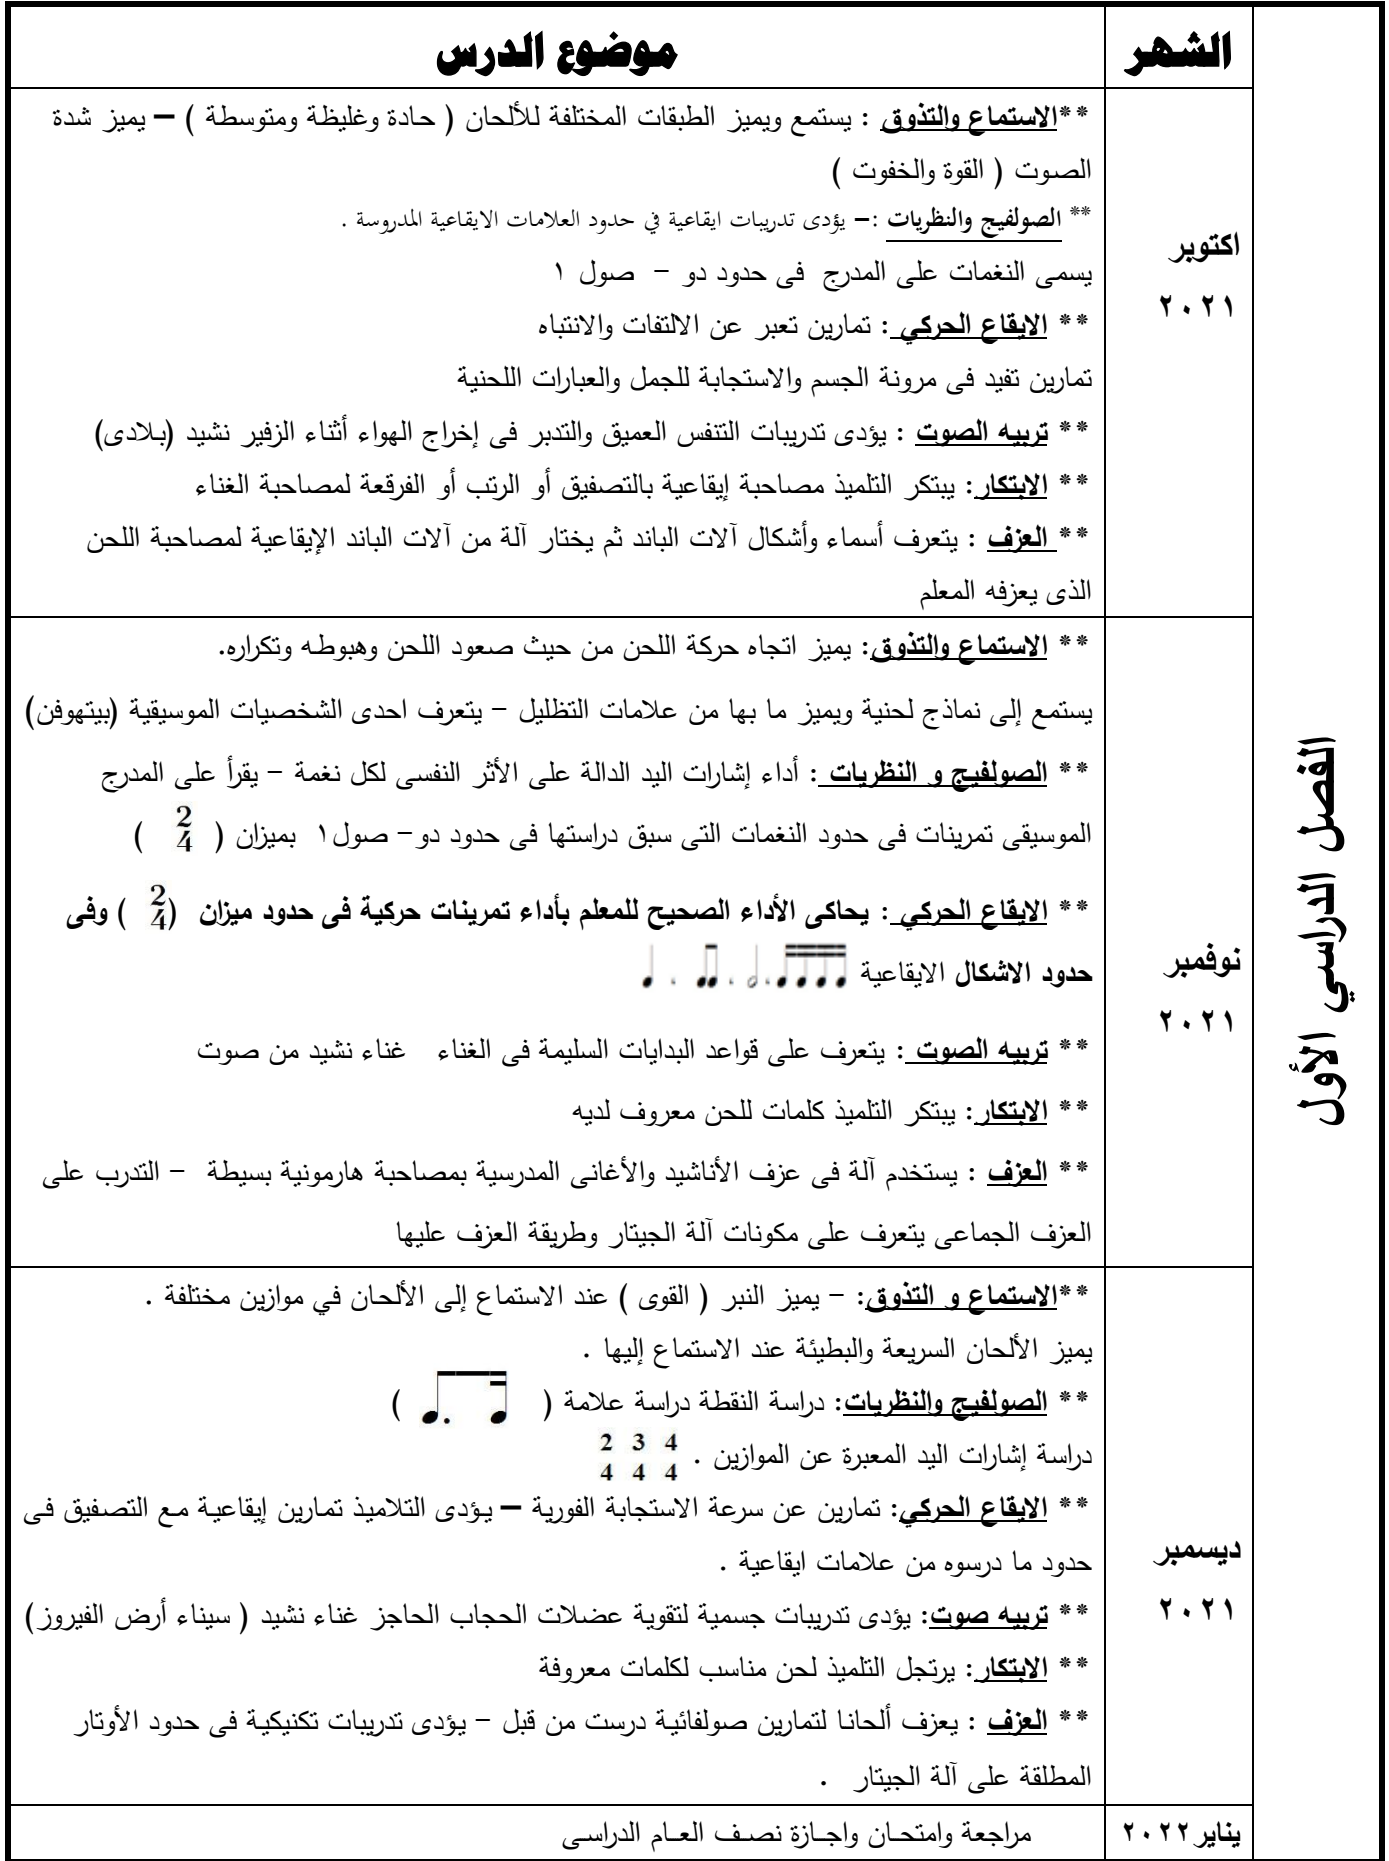 الشهر
موضوع الدرس
الفصل الدراسي الأول
اكتوبر
٢٠٢١
**الاستماع والتذوق : يستمع ويميز الطبقات المختلفة للألحان ( حادة وغليظة ومتوسطة ) – يميز شدة
الصوت ( القوة والخفوت )
** الصولفيج والنظريات :– يؤدى تدريبات ايقاعية في حدود العلامات الايقاعية المدروسة .
يسمى النغمات على المدرج فى حدود دو – صول ١
** الايقاع الحركي : تمارين تعبر عن الالتفات والانتباه
تمارين تفيد فى مرونة الجسم والاستجابة للجمل والعبارات اللحنية
** تربيه الصوت : يؤدى تدريبات التنفس العميق والتدبر فى إخراج الهواء أثناء الزفير نشيد (بلادى)
** الابتكار : يبتكر التلميذ مصاحبة إيقاعية بالتصفيق أو الرتب أو الفرقعة لمصاحبة الغناء
** العزف : يتعرف أسماء وأشكال آلات الباند ثم يختار آلة من آلات الباند الإيقاعية لمصاحبة اللحن
الذى يعزفه المعلم
نوفمبر
٢٠٢١
** الاستماع والتذوق: يميز اتجاه حركة اللحن من حيث صعود اللحن وهبوطه وتكراره.
يستمع إلى نماذج لحنية ويميز ما بها من علامات التظليل – يتعرف احدى الشخصيات الموسيقية (بيتهوفن)
** الصولفيج و النظريات : أداء إشارات اليد الدالة على الأثر النفسى لكل نغمة – يقرأ على المدرج
الموسيقى تمرينات فى حدود النغمات التى سبق دراستها فى حدود دو– صول١ بميزان ( 2/4 )
** الايقاع الحركي : يحاكى الأداء الصحيح للمعلم بأداء تمرينات حركية فى حدود ميزان ( 2/4 ) وفى
حدود الاشكال الايقاعية
** تربيه الصوت : يتعرف على قواعد البدايات السليمة فى الغناء غناء نشيد من صوت
** الابتكار : يبتكر التلميذ كلمات للحن معروف لديه
** العزف : يستخدم آلة فى عزف الأناشيد والأغانى المدرسية بمصاحبة هارمونية بسيطة – التدرب على
العزف الجماعى يتعرف على مكونات آلة الجيتار وطريقة العزف عليها
ديسمبر
٢٠٢١
**الاستماع و التذوق: – يميز النبر ( القوى ) عند الاستماع إلى الألحان في موازين مختلفة .
يميز الألحان السريعة والبطيئة عند الاستماع إليها .
** الصولفيج والنظريات: دراسة النقطة دراسة علامة ( )
دراسة إشارات اليد المعبرة عن الموازين . 2/4 3/4 4/4
** الايقاع الحركي: تمارين عن سرعة الاستجابة الفورية – يؤدى التلاميذ تمارين إيقاعية مع التصفيق فى
حدود ما درسوه من علامات ايقاعية .
** تربيه صوت: يؤدى تدريبات جسمية لتقوية عضلات الحجاب الحاجز غناء نشيد ( سيناء أرض الفيروز)
** الابتكار : يرتجل التلميذ لحن مناسب لكلمات معروفة
** العزف : يعزف ألحانا لتمارين صولفائية درست من قبل – يؤدى تدريبات تكنيكية فى حدود الأوتار
المطلقة على آلة الجيتار .
يناير ٢٠٢٢
مراجعة وامتحان واجازة نصف العام الدراسى